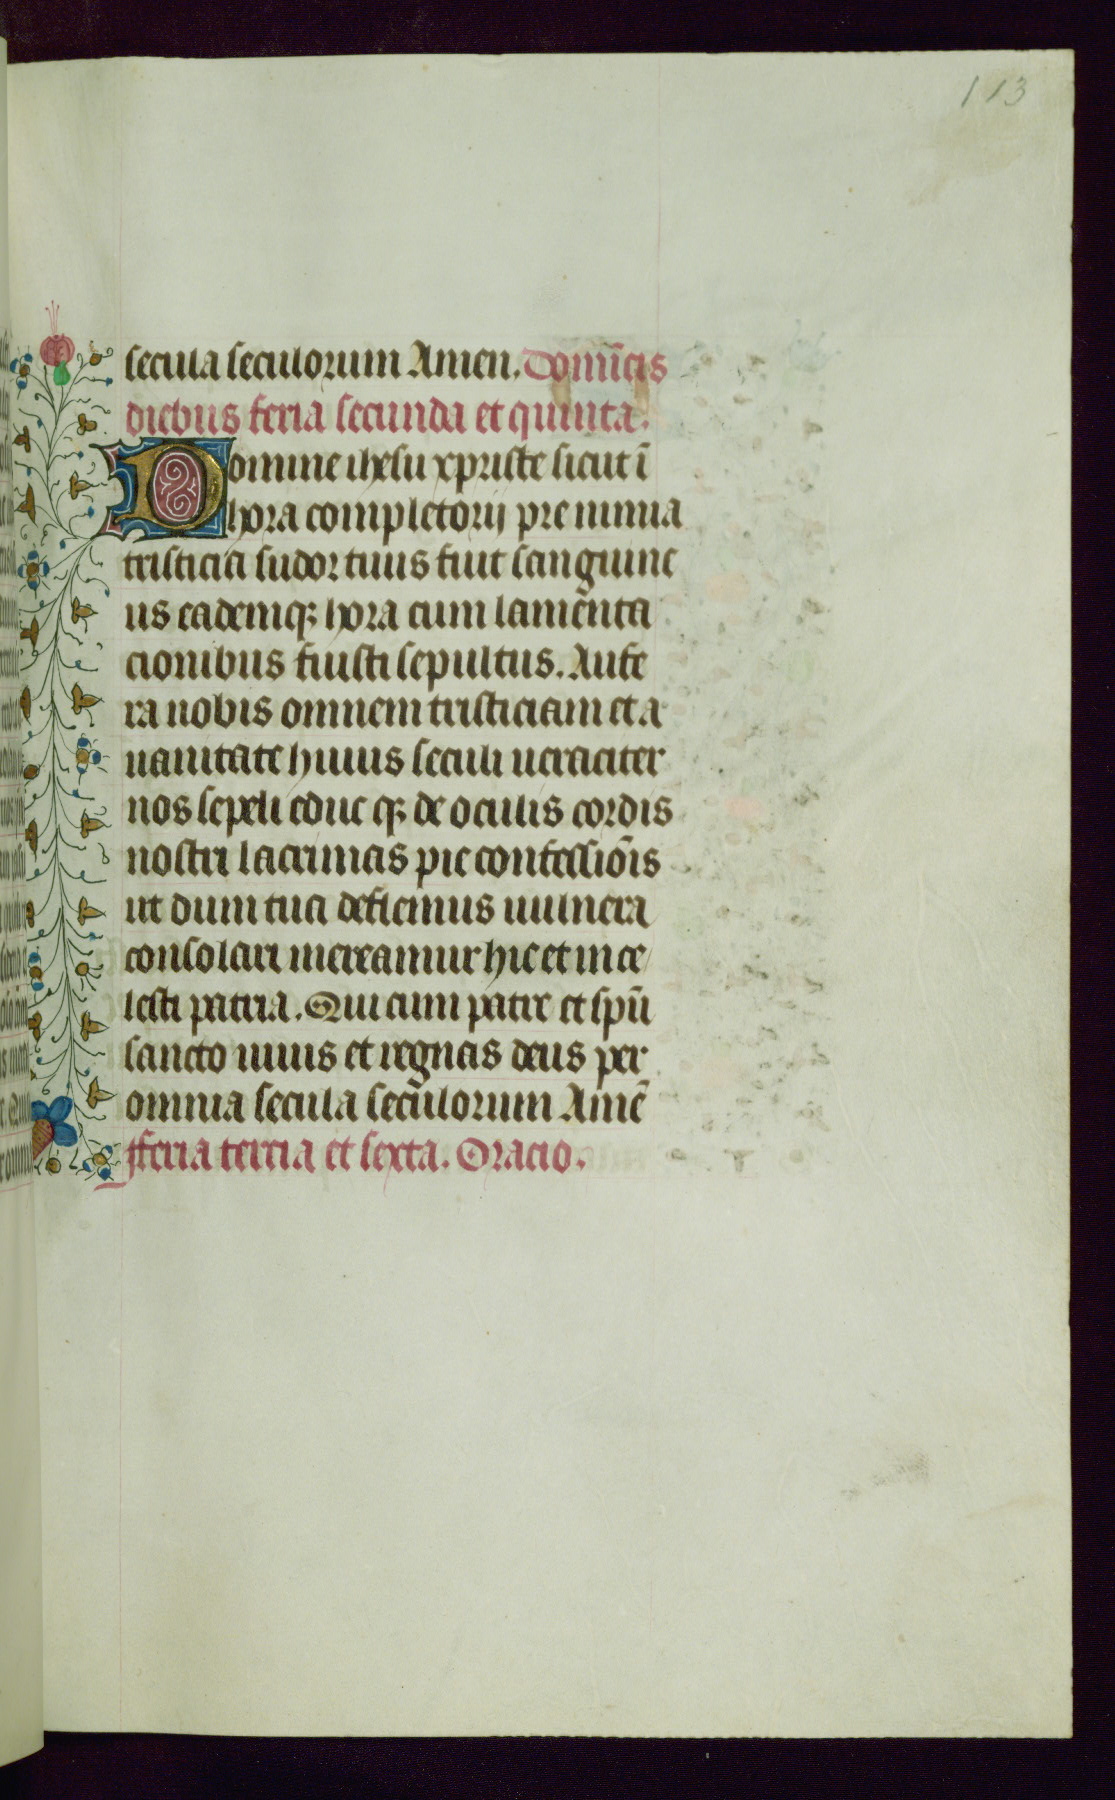 113
secula seculorum Amen. Domīcis
diebus feria secunda et quinta.
Domine ihesu xpriste sicut ī
hora completorij pre nimia
tristicia sudor tuus fiut sanguine
us eademqꝫ hora cum lamēnta
cionibus fuisti sepultus. Aufe
ra nobis omnem tristiciam et a
uanitate huius seculi ueraciter
nos sepeli educ qꝫ de oculis cordis
nostri lacrimas pie confessiōis
ut dum tua defiemus uulnera
consolari mereamur hic et in ce
lesti patria. Qui cum patre et spū
sancto uiuis et regnas deus per
omnia secula seculorum Amē
fferia tercia et sexta. Oracio.